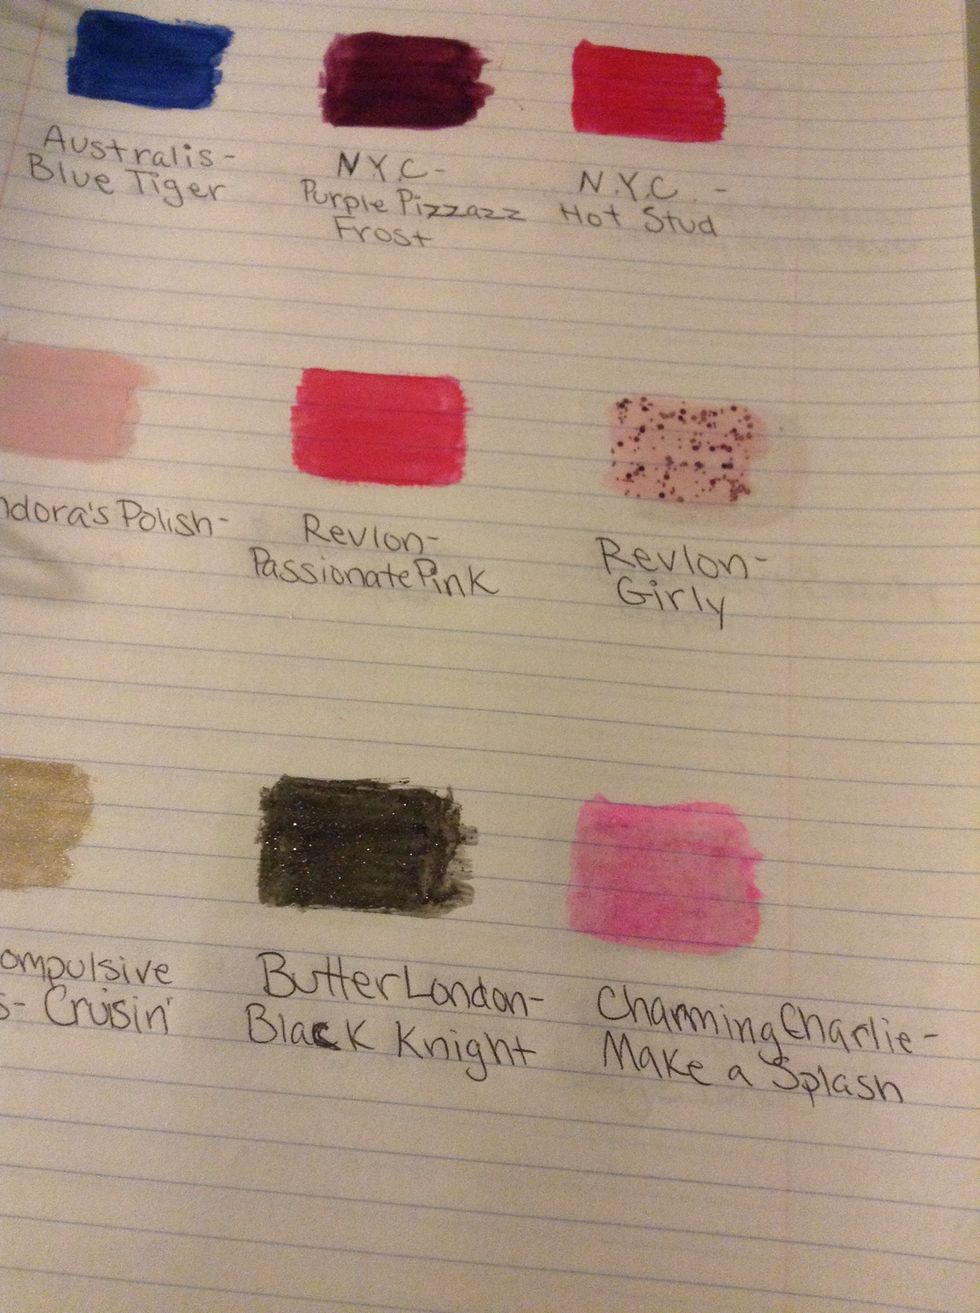 Australis-
Blue Tiger
N.Y.C-
Purple Pizzazz
Frost
N.Y.C. -
Hot Stud
ndora's Polish-
Revlon-
Passionate Pink
Revlon-
Girly
ompulsive
s- Cruisin'
Butter London-
Black Knight
Charming Charlie-
Make a Splash